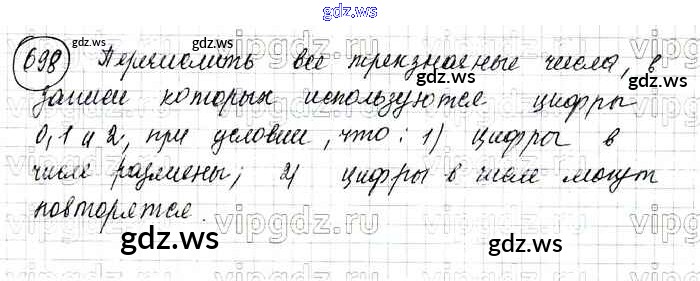 gdz.ws
698 Перечислить все трехзначные числа, в
записи которых используются цифры
0, 1 и 2, при условии, что: 1) цифры в
числе различны; 2) цифры в числе могут
повторятся.
gdz.ws
gdz.ws
gdz.ws
gdz.ws
gdz.ws
gdz.ws
gdz.ws
gdz.ws